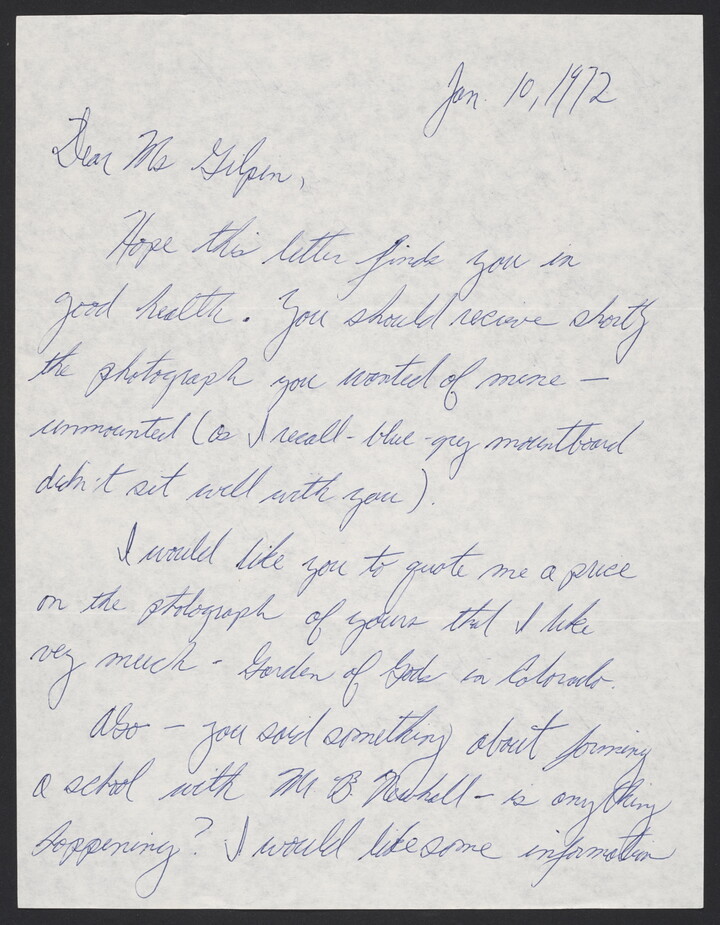 Jan. 10, 1972
Dear Ms Gilpin,
Hope this letter finds you in
good health. You should recieve shortly
the photograph you wanted of mine —
unmounted (as I recall - blue-grey mountboard
didn't set well with you).
I would like you to quote me a price
on the photograph of yours that I like
very much - Garden of Gods in Colorado.
Also — you said something about forming
a school with Mr B Newhall — is anything
happening? I would like some information